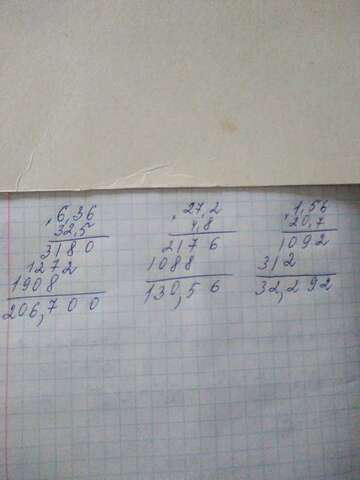 6,36
32,5
3180
1272
1908
206,700
27,2
4,8
2176
1088
130,56
1,56
20,7
1092
312
32,292